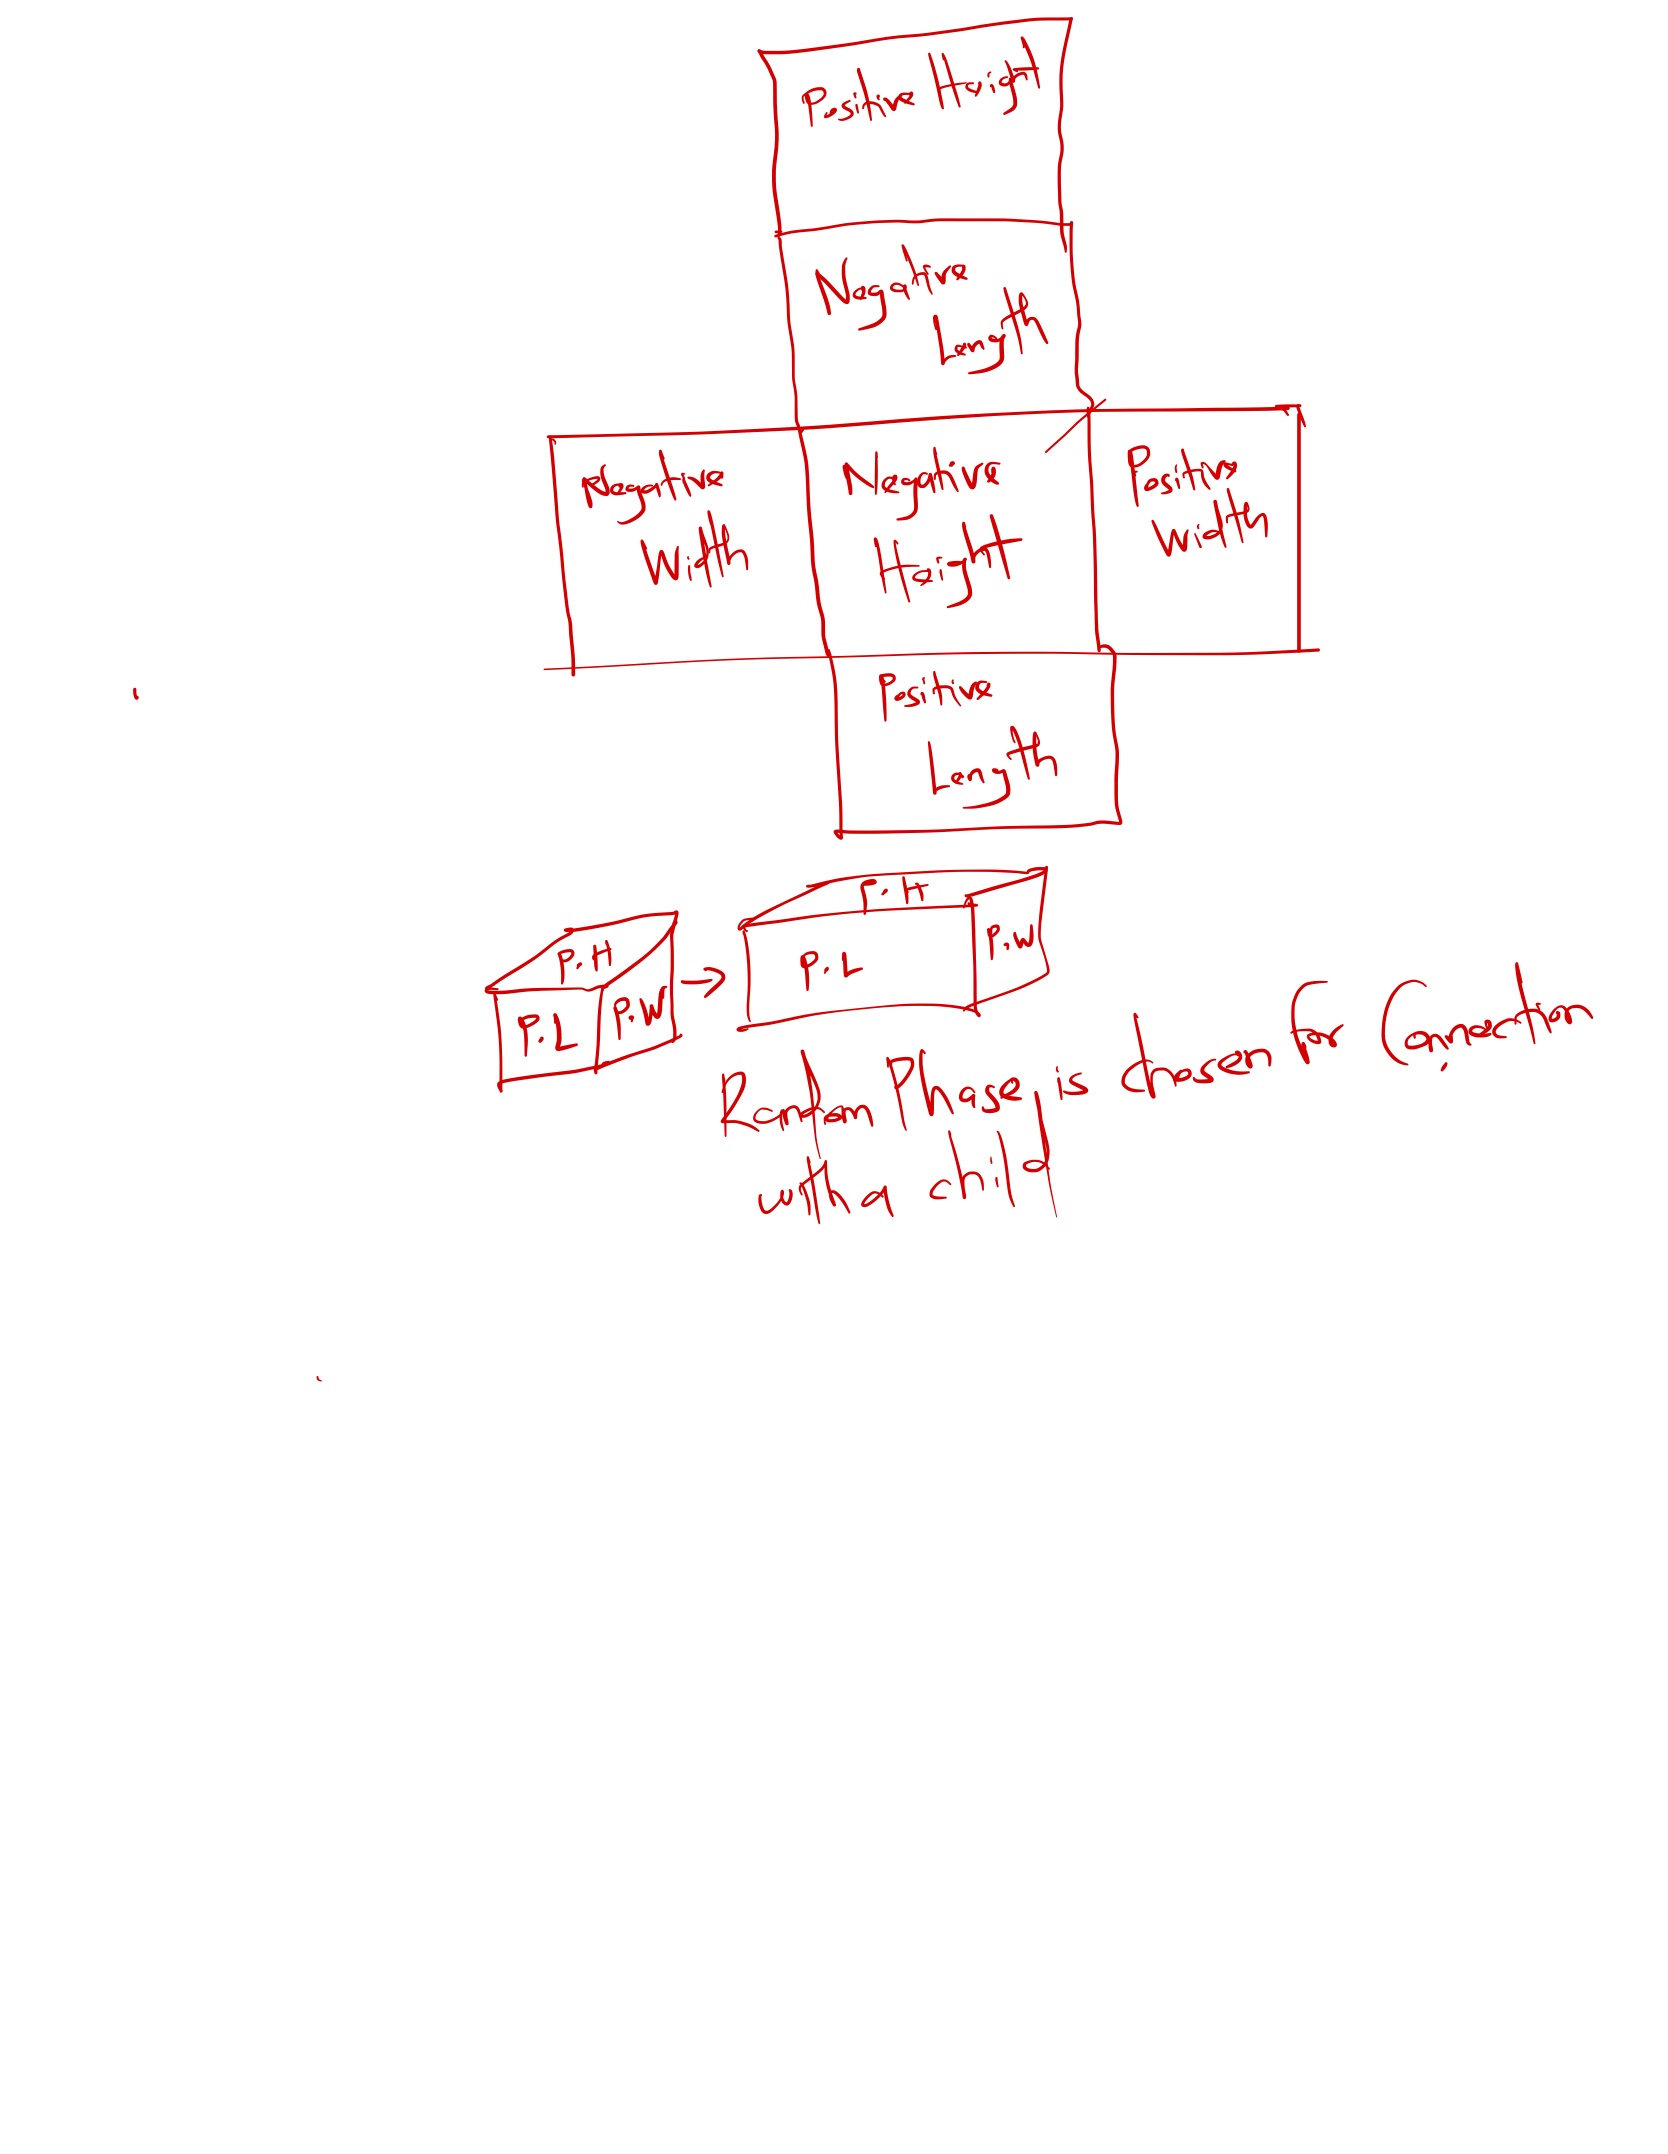 Positive Height
Negative
Length
Negative
Width
Negative
Height
Positive
Width
Positive
Length
P.H
P.L
P.W
P.H
P.L
P.W
Random Phase is chosen for Connection
with a child